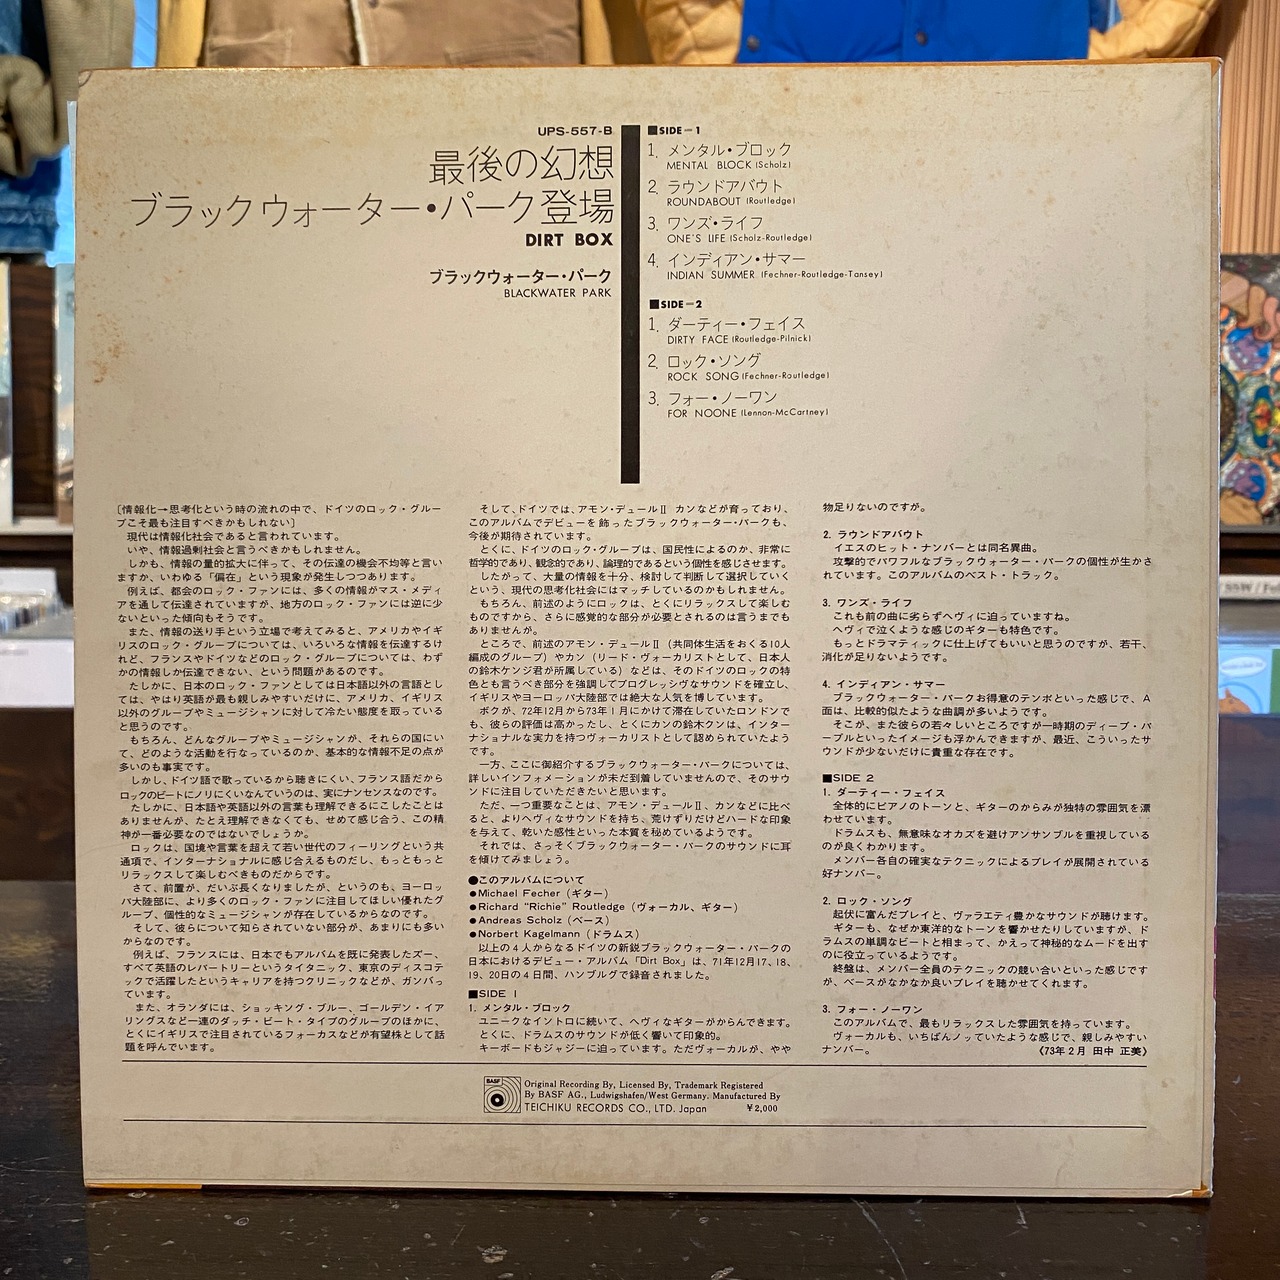 UPS-557-B
最後の幻想
ブラックウォーター・パーク登場
DIRT BOX
ブラックウォーター・パーク
BLACKWATER PARK
■SIDE-1
1. メンタル・ブロック
MENTAL BLOCK (Scholz)
2. ラウンドアバウト
ROUNDABOUT (Routledge)
3. ワンズ・ライフ
ONE'S LIFE (Scholz-Routledge)
4. インディアン・サマー
INDIAN SUMMER (Fechner-Routledge-Tansey)
■SIDE-2
1. ダーティー・フェイス
DIRTY FACE (Routledge-Pilnick)
2. ロック・ソング
ROCK SONG (Fechner-Routledge)
3. フォー・ノーワン
FOR NOONE (Lennon-McCartney)
[情報化→思考化という時の流れの中で、ドイツのロック・グルー
プこそ最も注目すべきかもしれない]
現代は情報化社会であると言われています。
いや、情報過剰社会と言うべきかもしれません。
しかも、情報の量的拡大に伴って、その伝達の機会不均等と言い
ますか、いわゆる「偏在」という現象が発生しつつあります。
例えば、都会のロック・ファンには、多くの情報がマス・メディ
アを通して伝達されていますが、地方のロック・ファンには逆に少
ないといった傾向もそうです。
また、情報の送り手という立場で考えてみると、アメリカやイギ
リスのロック・グループについては、いろいろな情報を伝達するけ
れど、フランスやドイツなどのロック・グループについては、わず
かの情報しか伝達できない、という問題があるのです。
たしかに、日本のロック・ファンとしては日本語以外の言語とし
ては、やはり英語が最も親しみやすいだけに、アメリカ、イギリス
以外のグループやミュージシャンに対して冷たい態度を取っている
と思うのです。
もちろん、どんなグループやミュージシャンが、それらの国にい
て、どのような活動を行なっているのか、基本的な情報不足の点が
多いのも事実です。
しかし、ドイツ語で歌っているから聴きにくい、フランス語だから
ロックのビートにノリにくいなんていうのは、実にナンセンスなのです。
たしかに、日本語や英語以外の言葉も理解できるにこしたことは
ありませんが、たとえ理解できなくても、せめて感じ合う、この精
神が一番必要なのではないでしょうか。
ロックは、国境や言葉を超えて若い世代のフィーリングという共
通項で、インターナショナルに感じ合えるものだし、もっともっと
リラックスして楽しむべきものだからです。
さて、前置が、だいぶ長くなりましたが、というのも、ヨーロッ
パ大陸部に、より多くのロック・ファンに注目してほしい優れたグ
ループ、個性的なミュージシャンが存在しているからなのです。
そして、彼らについて知らされていない部分が、あまりにも多い
からなのです。
例えば、フランスには、日本でもアルバムを既に発表したズー、
すべて英語のレパートリーというタイタニック、東京のディスコテ
ックで活躍したというキャリアを持つクリニックなどが、ガンバっ
ています。
また、オランダには、ショッキング・ブルー、ゴールデン・イア
リングスなど一連のダッチ・ビート・タイプのグループのほかに、
とくにイギリスで注目されているフォーカスなどが有望株として話
題を呼んでいます。
そして、ドイツでは、アモン・デュールⅡ カンなどが育っており、
このアルバムでデビューを飾ったブラックウォーター・パークも、
今後が期待されています。
とくに、ドイツのロック・グループは、国民性によるのか、非常に
哲学的であり、観念的であり、論理的であるという個性を感じさせます。
したがって、大量の情報を十分、検討して判断して選択していく
という、現代の思考化社会にはマッチしているのかもしれません。
もちろん、前述のようにロックは、とくにリラックスして楽しむ
ものですから、さらに感覚的な部分が必要とされるのは言うまでも
ありませんが。
ところで、前述のアモン・デュールⅡ (共同体生活をおくる10人
編成のグループ) やカン (リード・ヴォーカリストとして、日本人
の鈴木ケンジ君が所属している) などは、そのドイツのロックの特
色とも言うべき部分を強調してプログレッシヴなサウンドを確立し、
イギリスやヨーロッパ大陸部では絶大な人気を博しています。
ボクが、72年12月から73年1月にかけて滞在していたロンドンで
も、彼らの評価は高かったし、とくにカンの鈴木クンは、インター
ナショナルな実力を持つヴォーカリストとして認められていたよう
です。
一方、ここに御紹介するブラックウォーター・パークについては、
詳しいインフォメーションが未だ到着していませんので、そのサウ
ンドに注目していただきたいと思います。
ただ、一つ重要なことは、アモン・デュールⅡ、カンなどに比べ
ると、よりヘヴィなサウンドを持ち、荒けずりだけどハードな印象
を与えて、乾いた感性といった本質を秘めているようです。
それでは、さっそくブラックウォーター・パークのサウンドに耳
を傾けてみましょう。
●このアルバムについて
●Michael Fecher (ギター)
●Richard "Richie" Routledge (ヴォーカル、ギター)
●Andreas Scholz (ベース)
●Norbert Kagelmann (ドラムス)
以上の4人からなるドイツの新鋭ブラックウォーター・パークの
日本におけるデビュー・アルバム「Dirt Box」は、71年12月17、18、
19、20日の4日間、ハンブルグで録音されました。
■SIDE 1
1. メンタル・ブロック
ユニークなイントロに続いて、ヘヴィなギターがからんできます。
とくに、ドラムスのサウンドが低く響いて印象的。
キーボードもジャジーに迫っています。ただヴォーカルが、やや
物足りないのですが。
2. ラウンドアバウト
イエスのヒット・ナンバーとは同名異曲。
攻撃的でパワフルなブラックウォーター・パークの個性が生かさ
れています。このアルバムのベスト・トラック。
3. ワンズ・ライフ
これも前の曲に劣らずヘヴィに迫っていますね。
ヘヴィで泣くような感じのギターも特色です。
もっとドラマティックに仕上げてもいいと思うのですが、若干、
消化が足りないようです。
4. インディアン・サマー
ブラックウォーター・パークお得意のテンポといった感じで、A
面は、比較的似たような曲調が多いようです。
そこが、また彼らの若々しいところですが一時期のディープ・パ
ープルといったイメージも浮かんできますが、最近、こういったサ
ウンドが少ないだけに貴重な存在です。
■SIDE 2
1. ダーティー・フェイス
全体的にピアノのトーンと、ギターのからみが独特の雰囲気を漂
わせています。
ドラムスも、無意味なオカズを避けアンサンブルを重視している
のが良くわかります。
メンバー各自の確実なテクニックによるプレイが展開されている
好ナンバー。
2. ロック・ソング
起伏に富んだプレイと、ヴァラエティ豊かなサウンドが聴けます。
ギターも、なぜか東洋的なトーンを響かせたりしていますが、ド
ラムスの単調なビートと相まって、かえって神秘的なムードを出す
のに役立っているようです。
終盤は、メンバー全員のテクニックの競い合いといった感じです
が、ベースがなかなか良いプレイを聴かせてくれます。
3. フォー・ノーワン
このアルバムで、最もリラックスした雰囲気を持っています。
ヴォーカルも、いちばんノッていたような感じで、親しみやすい
ナンバー。 《73年2月 田中 正美》
BASF
Original Recording By, Licensed By, Trademark Registered
By BASF AG., Ludwigshafen/West Germany. Manufactured By
TEICHIKU RECORDS CO., LTD. Japan ¥2,000
SSW / Fo